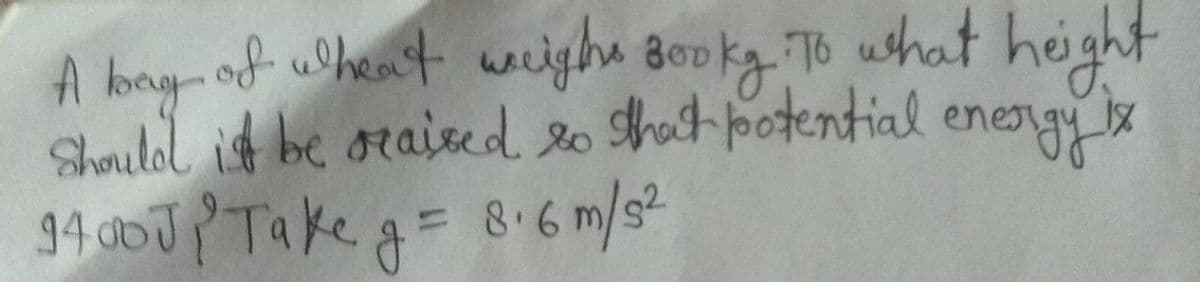 A bag of wheat weighs 300 kg. To what height
Should it be raised so that potential energy is
9400J? Take g = 8.6 m/s²